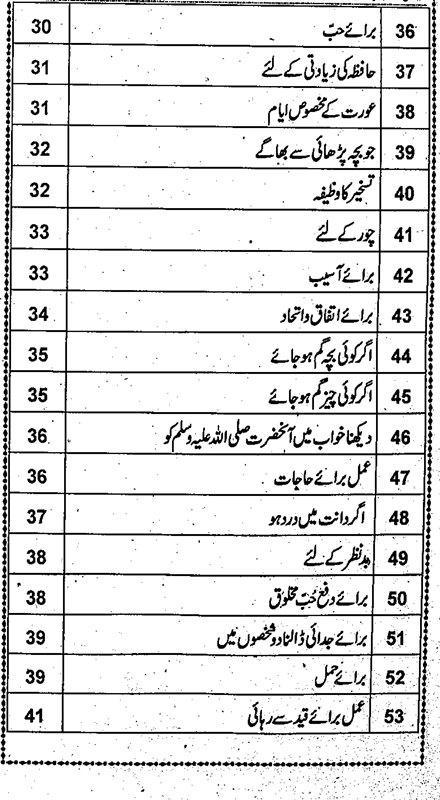 36 برائے حبّ 30
37 حافظہ کی زیادتی کے لئے 31
38 عورت کے مخصوص ایام 31
39 جو بچہ پڑھائی سے بھاگے 32
40 تسخیر کا وظیفہ 32
41 چور کے لئے 33
42 برائے آسیب 33
43 برائے اتفاق و اتحاد 34
44 اگر کوئی بچہ گم ہو جائے 35
45 اگر کوئی چیز گم ہو جائے 35
46 دیکھنا خواب میں آنحضرت صلی اللہ علیہ وسلم کو 36
47 عمل برائے حاجات 36
48 اگر دانت میں درد ہو 37
49 بدنظر کے لئے 38
50 برائے دفع حُبّ مخلوق 38
51 برائے جدائی ڈالنا دو شخصوں میں 39
52 برائے حمل 39
53 عمل برائے قید سے رہائی 41